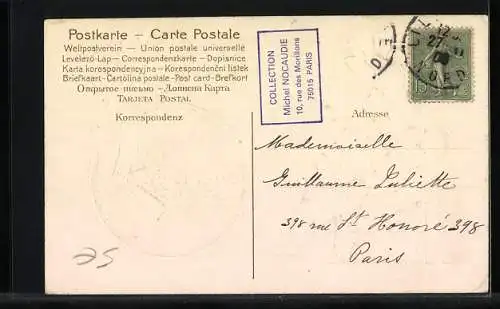 Postkarte – Carte Postale
Weltpostverein – Union postale universelle
Levelező-Lap – Correspondenzkarte – Dopisnice
Karta korespondencyjna – Korespondenční lístek
Briefkaart – Cartolina postale – Post card – Brefkort
Открытое письмо – Дописна Карта
TARJETA POSTAL
Korrespondenz
COLLECTION
Michel NOCAUDIE
10, rue des Morillons
75015 PARIS
15
Adresse
Mademoiselle
Guillaume Juliette
398 rue St Honoré 398
Paris